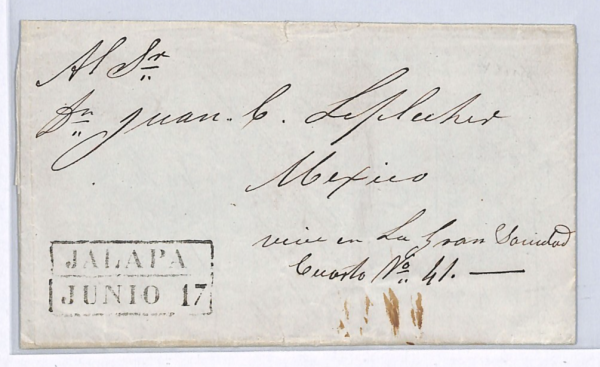 Al Sr
Dn Juan. C.
Mexico
vive en La Gran Sociedad
Cuarto No. 41. —
JALAPA
JUNIO 17